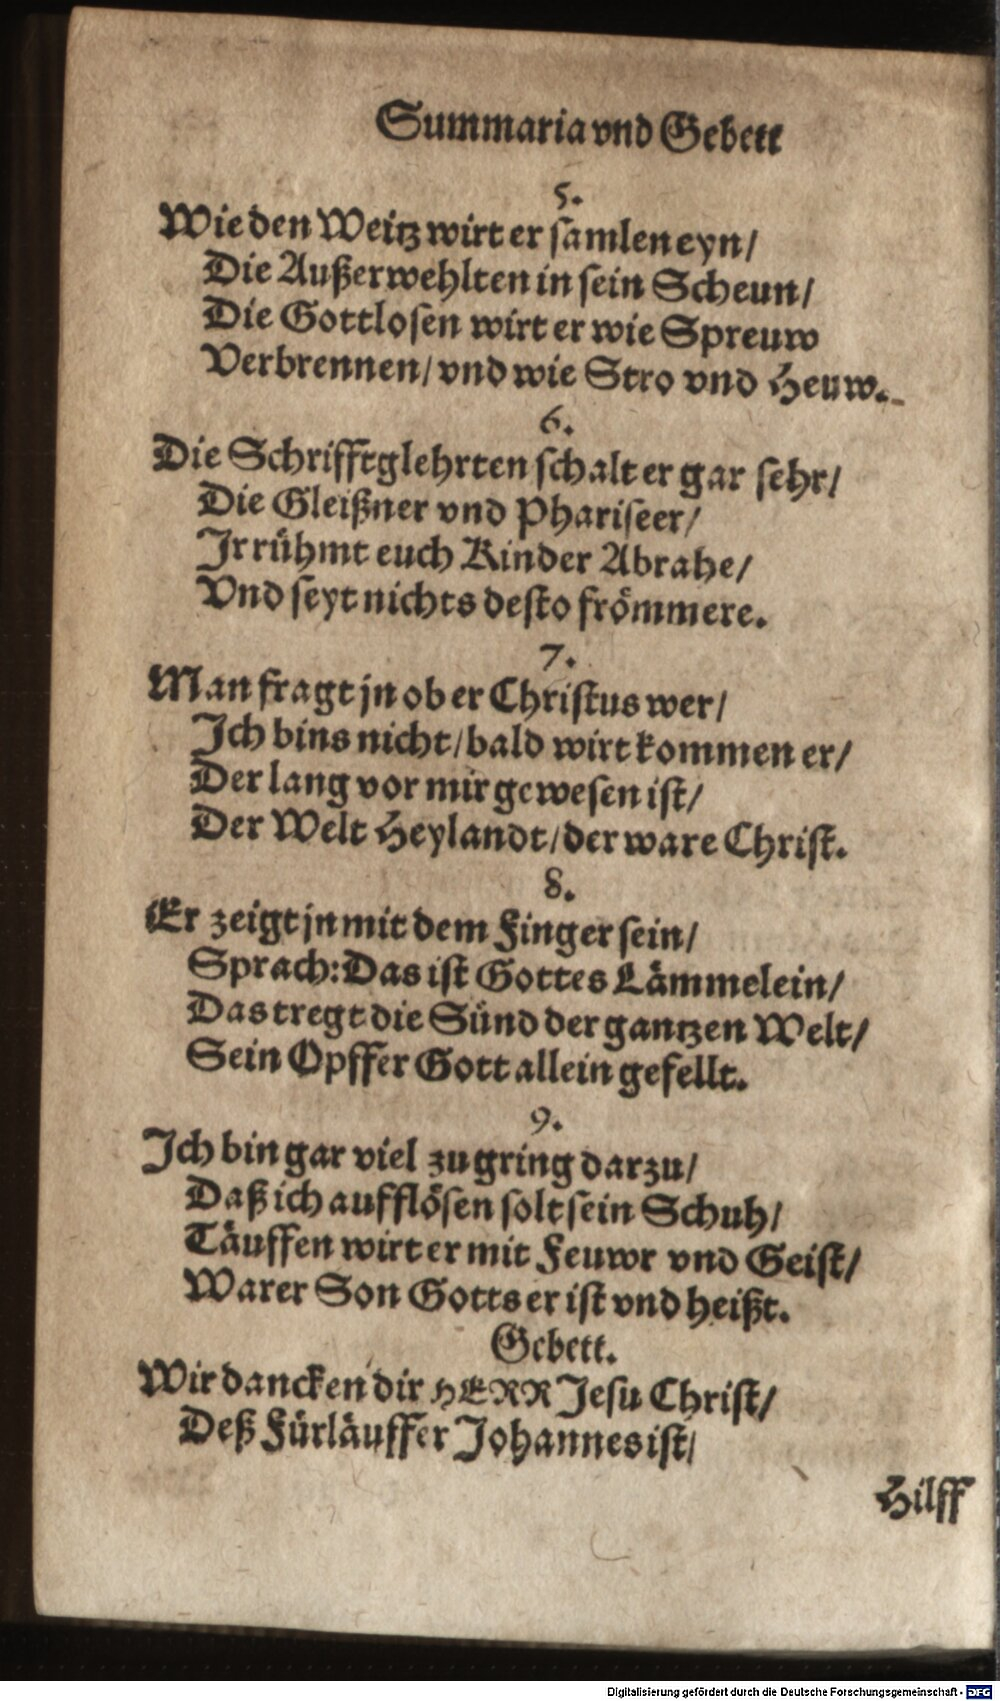 Summaria vnd Gebett
5.
Wie den Weitz wirt er samlen eyn/
Die Außerwehlten in sein Scheun/
Die Gottlosen wirt er wie Spreuw
Verbrennen/ vnd wie Stro vnd Heuw.
6.
Die Schrifftglehrten schalt er gar sehr/
Die Gleißner vnd Phariseer/
Jr rühmt euch Kinder Abrahe/
Vnd seyt nichts desto frömmere.
7.
Man fragt jn ob er Christus wer/
Jch bins nicht/ bald wirt kommen er/
Der lang vor mir gewesen ist/
Der Welt Heylandt/ der ware Christ.
8.
Er zeigt jn mit dem Finger sein/
Sprach: Das ist Gottes Lämmelein/
Das tregt die Sünd der gantzen Welt/
Sein Opffer Gott allein gefellt.
9.
Jch bin gar viel zu gring darzu/
Daß ich aufflösen solt sein Schuh/
Täuffen wirt er mit Feuwr vnd Geist/
Warer Son Gotts er ist vnd heißt.
Gebett.
Wir dancken dir HERR Jesu Christ/
Deß Fürläuffer Johannes ist/
Hilff
Digitalisierung gefördert durch die Deutsche Forschungsgemeinschaft - DFG